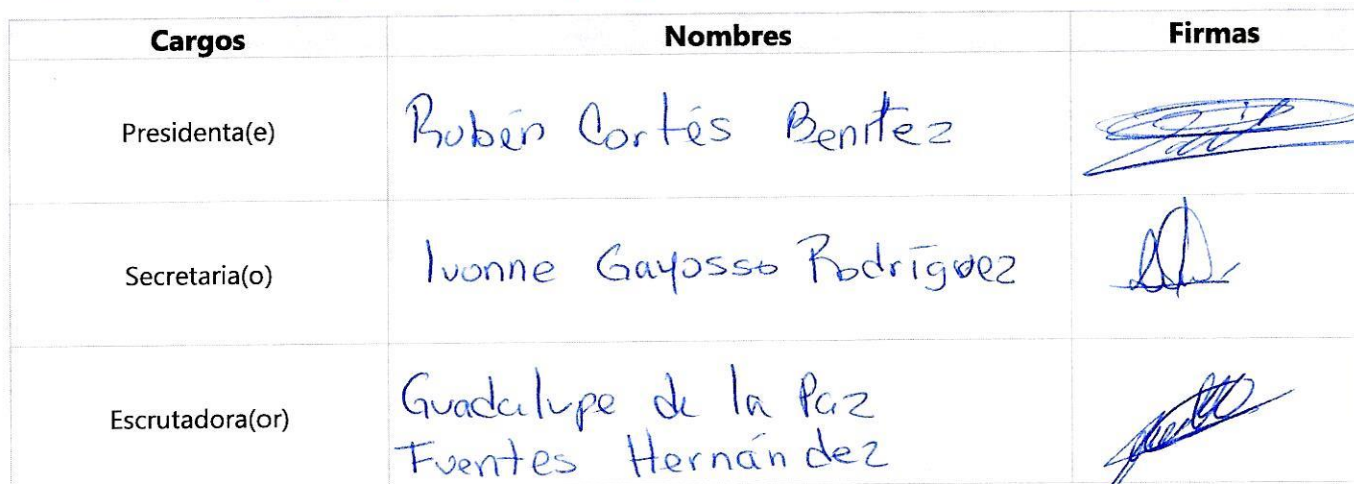 Cargos Nombres Firmas
Presidenta(e) Rubén Cortés Benítez
Secretaria(o) Ivonne Gayosso Rodríguez
Escrutadora(or) Guadalupe de la Paz
Fuentes Hernández